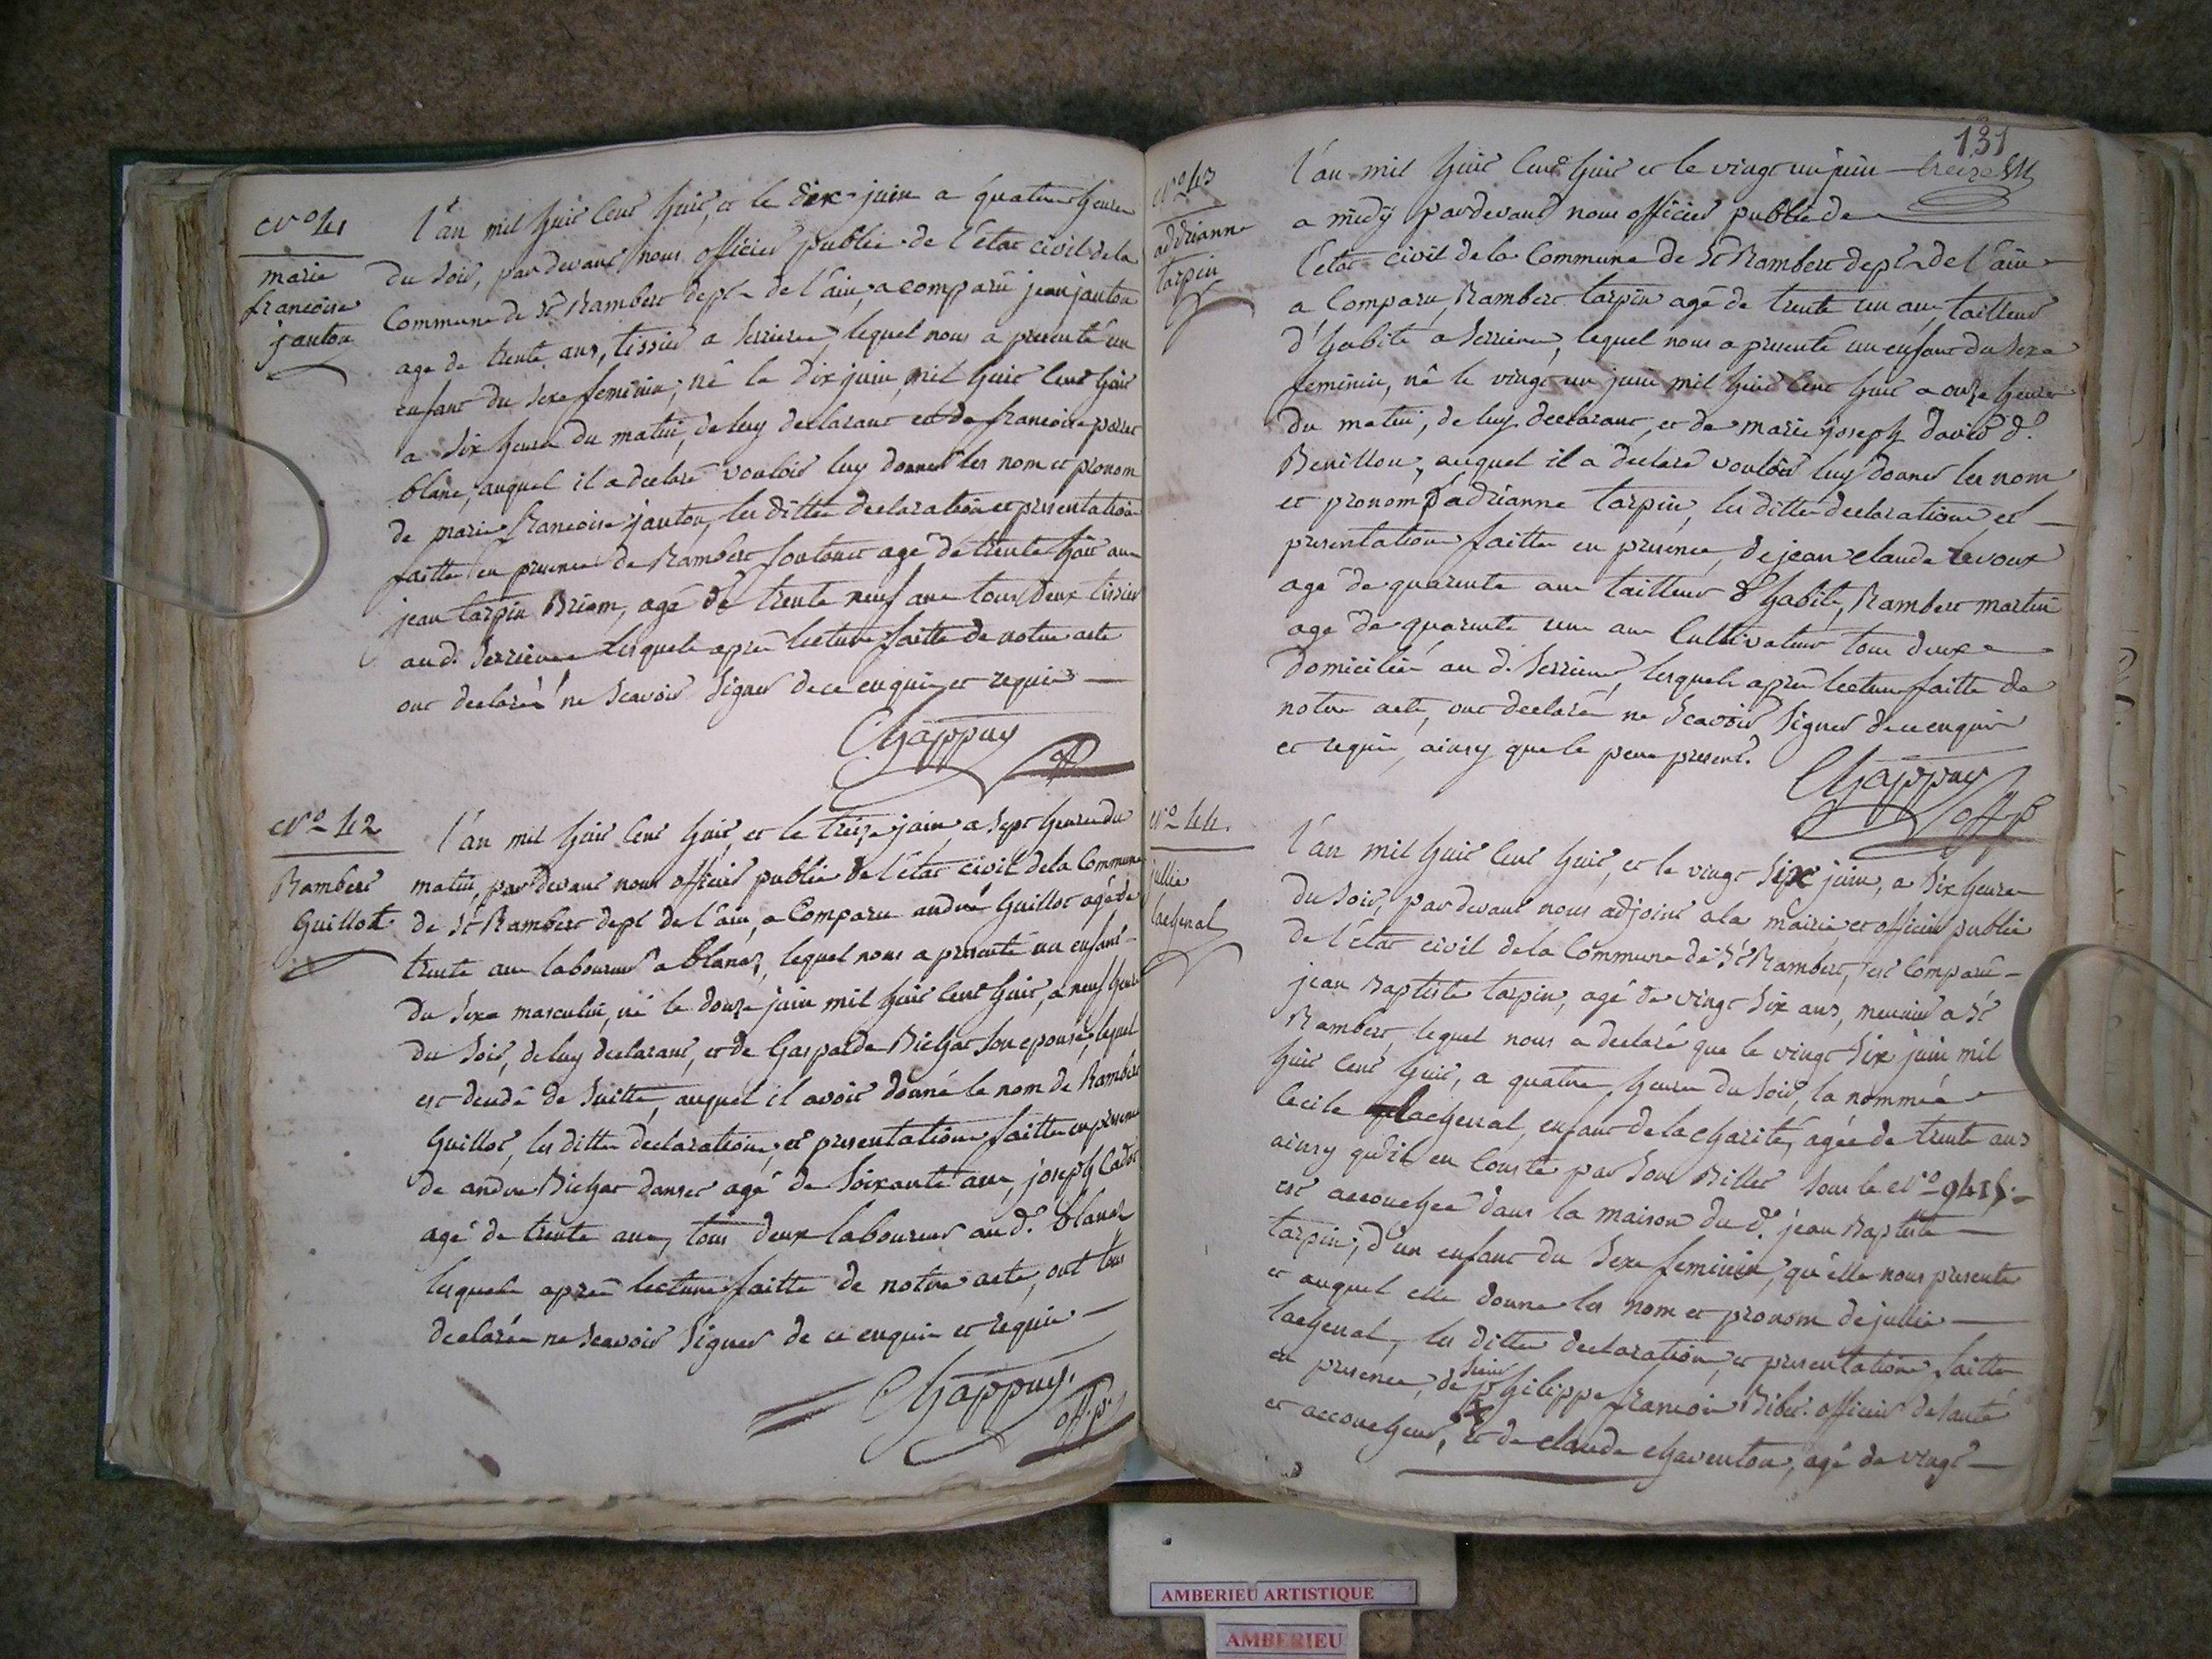 N.° 41
marie
francoise
janton
l'an mil huit cent huit, et le dix juin a quatre heures
du soir, par devant nous officier public de l'état civil de la
Commune de St Rambert dept. de l'ain, a comparu jean janton
age de trente ans, tissier a serrieres, lequel nous a presenté un
enfant du sexe feminin, né le dix juin mil huit cent huit
a six heures du matin, de luy declarant et de francoise
blanc, auquel il a declaré vouloir luy donner les nom et pronom
de marie francoise janton, les dittes declaration et presentation
faittes en presence de Rambert age de trente huit ans
jean tarpin Briam, agé de trente neuf ans tous deux tissier
au d. serrieres lesquels après lecture faitte de notre acte
ont declarés ne scavoir signer de ce enquis et requis
Chappuy
N.° 42
Rambert
Guillot
l'an mil huit cent huit, et le treize juin, a sept heures du
matin, par devant nous officier public de l'état civil de la Commune
de St Rambert dept de l'ain, a Comparu andré Guillot agé de
trente ans laboureur a blanaz, lequel nous a presenté un enfant
du sexe masculin, né le douze juin mil huit cent huit, a neuf heures
du soir, de luy declarant, et de Gasparde Bichat son epouse, lequel
est decédé de suitte, auquel il avoit donné le nom de Rambert
Guillot, les dittes declaration et presentation faittes en presence
de andré Bichat danser agé de soixante ans, joseph Cadot
agé de trente ans, tous deux laboureur au d. blanaz
lesquels après lecture faitte de notre acte, ont tous
declarés ne scavoir signer de ce enquis et requis
Chappuy.
off. p.
131
N.° 43
addrianne
tarpin
l'an mil huit cent huit et le vingt un juin
a midÿ par devant nous officier public de
l'état civil de la Commune de St Rambert dept. de l'ain
a Comparu, Rambert tarpin agé de trente un ans, tailleur
d'habits a serrieres, lequel nous a presenté un enfant du sexe
feminin, né le vingt un juin mil huit cent huit a onze heures
du matin, de luy declarant, et de marie joseph david d.
Benillon, auquel il a declaré vouloir luy donner les nom
et pronom d'adrianne tarpin, les dittes declaration et
presentation faittes en presence, de jean claude levoux
agé de quarente ans tailleur d'habits, Rambert martin
agé de quarente un ans Cultivateur tous deux
domiciliés au d. serrieres, lesquels après lecture faitte de
notre acte, ont declarés ne scavoir signer de ce enquis
et requis, ainsy que le pere present.
Chappuy
off. p
N.° 44.
jullie
lachenal
l'an mil huit cent huit, et le vingt six juin, a six heures
du soir, par devant nous adjoint a la mairie et officier public
de l'état civil de la Commune de St Rambert, est Comparu
jean Baptiste tarpin, agé de vingt six ans, meunier a St
Rambert, lequel nous a declaré que le vingt six juin mil
huit cent huit, a quatre heures du soir, la nommée
Cecile lachenal, enfant de la charité, agée de trente ans
ainsy qu'il en Conste par son Billet sous le N.°
est accouchee dans la maison du d. jean Baptiste
tarpin, d'un enfant du sexe feminin, qu'elle nous presente
et auquel elle donne les nom et pronom de jullie
lachenal, les dittes declaration et presentation faittes
en presence, de sieur philippe francois Bibet officier de santé
et accoucheur, et de claude chaventon, agé de vingt
AMBERIEU ARTISTIQUE
AMBERIEU